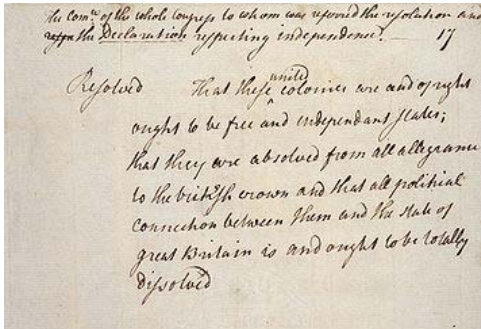 The comee. of the whole Congress to whom was referred the resolution and
the Declaration respecting independence. — 17
Resolved That these united colonies are and of right
ought to be free and independant states;
that they are absolved from all allegiance
to the british crown and that all political
connection between them and the state of
great Britain is and ought to be totally
dissolved